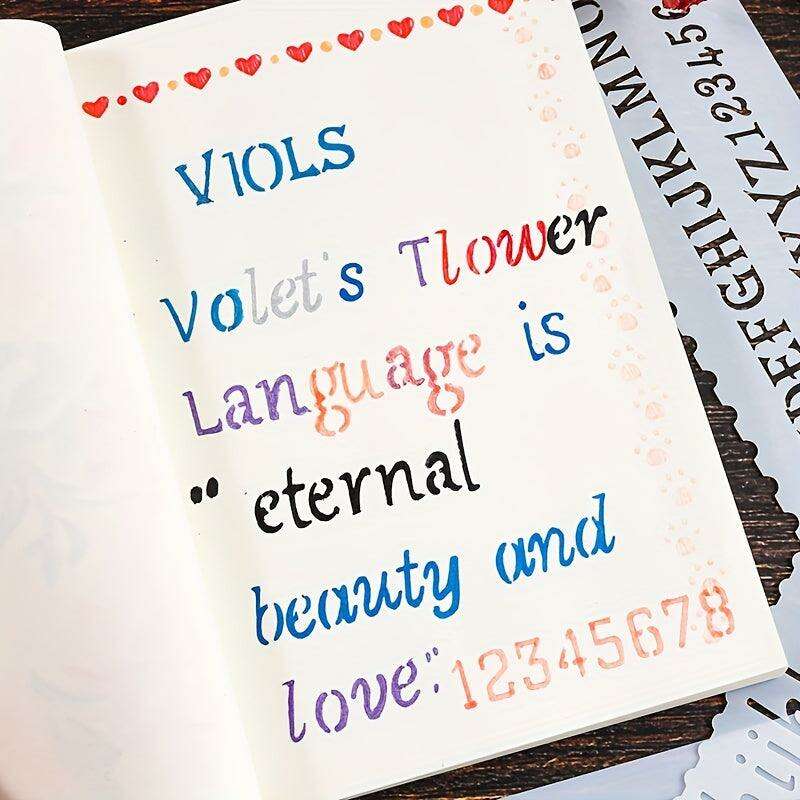 VIOLS
Volet's Tlower
Language is
" eternal
beauty and
love" 12345678
GHIJKLMNO
YZ123456